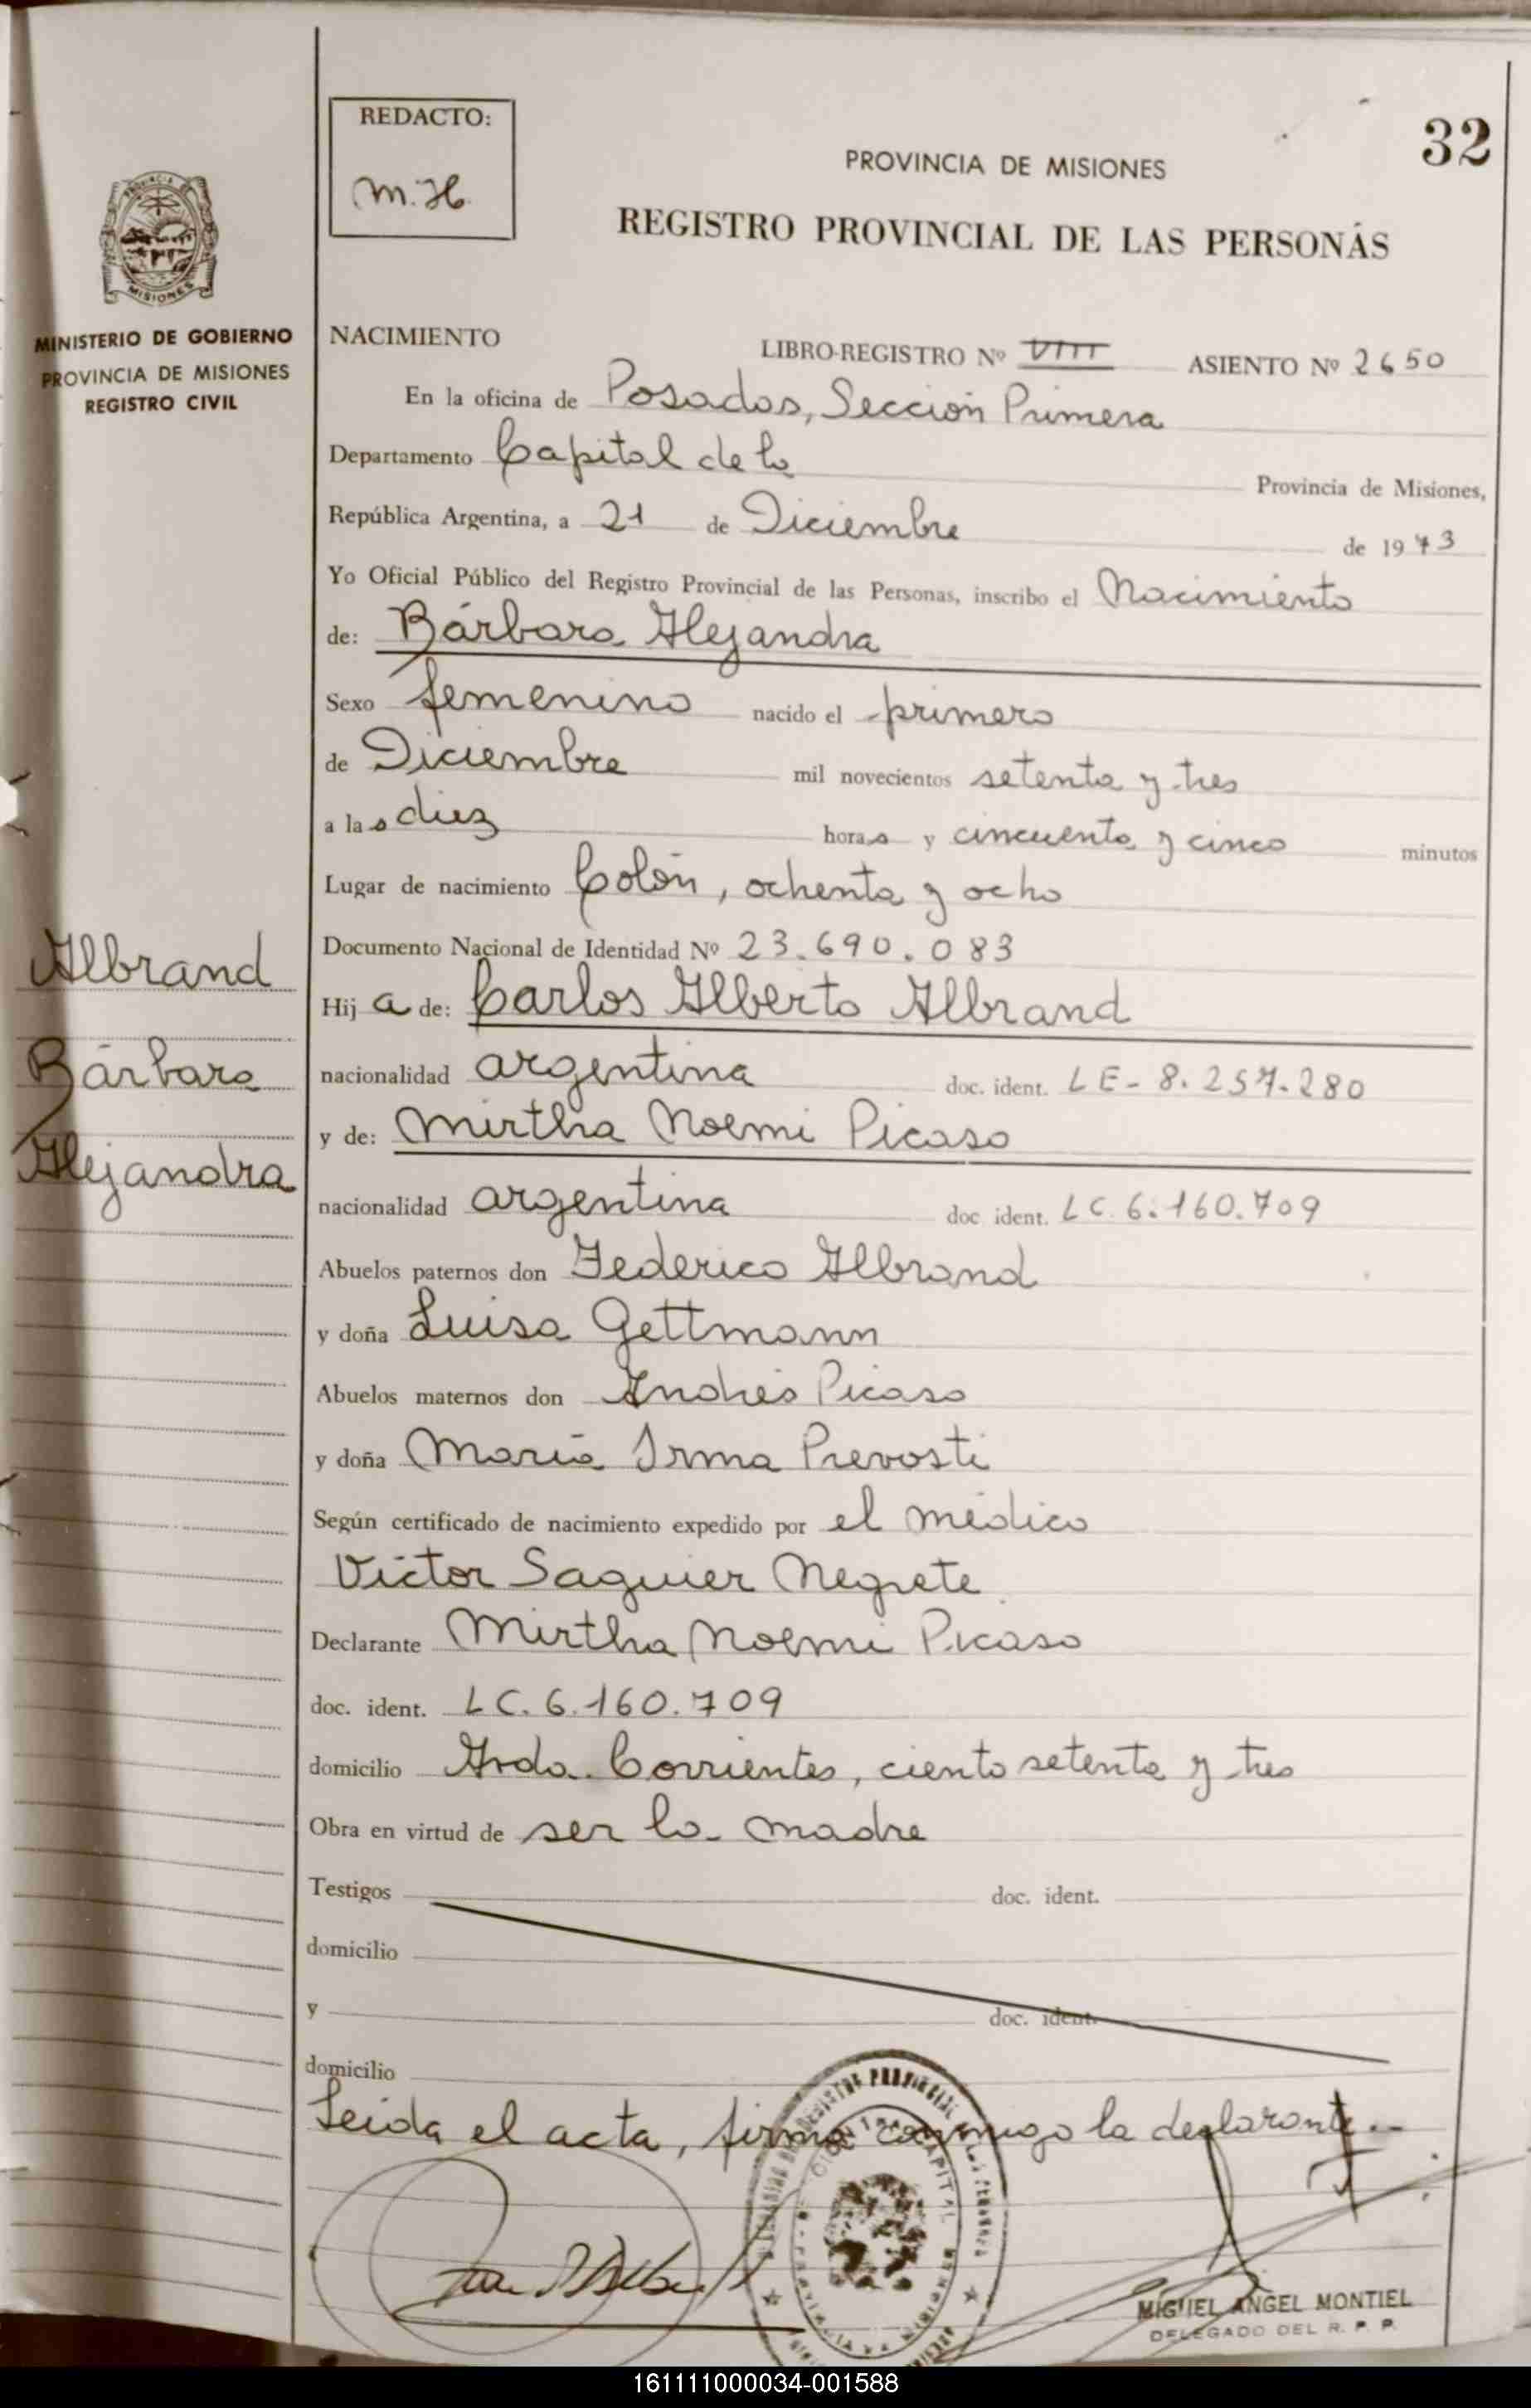 REDACTO:
M.H.
32
PROVINCIA DE MISIONES
REGISTRO PROVINCIAL DE LAS PERSONAS
MISIONES
MINISTERIO DE GOBIERNO
PROVINCIA DE MISIONES
REGISTRO CIVIL
NACIMIENTO LIBRO-REGISTRO Nº VIII ASIENTO Nº 2650
En la oficina de Posadas, Sección Primera
Departamento Capital de la Provincia de Misiones,
República Argentina, a 21 de Diciembre de 1973
Yo Oficial Público del Registro Provincial de las Personas, inscribo el Nacimiento
de: Bárbara Alejandra
Sexo femenino nacido el primero
de Diciembre mil novecientos setenta y tres
a las diez horas y cincuenta y cinco minutos
Lugar de nacimiento Colón, ochenta y ocho
Documento Nacional de Identidad Nº 23.690.083
Albrand
Bárbara
Alejandra
Hija de: Carlos Alberto Albrand
nacionalidad argentina doc. ident. LE-8.257.280
y de: Mirtha Noemi Picaso
nacionalidad argentina doc ident. LC.6.160.709
Abuelos paternos don Federico Albrand
y doña Luisa Gettmann
Abuelos maternos don Andrés Picaso
y doña María Irma Prevosti
Según certificado de nacimiento expedido por el médico
Víctor Saguier Negrete
Declarante Mirtha Noemi Picaso
doc. ident. LC.6.160.709
domicilio Avda. Corrientes, ciento setenta y tres
Obra en virtud de ser la madre
Testigos doc. ident.
domicilio
y doc. ident.
domicilio
Leida el acta, firma conmigo la declarante.-
MIGUEL ANGEL MONTIEL
DELEGADO DEL R. P. P.
161111000034-001588